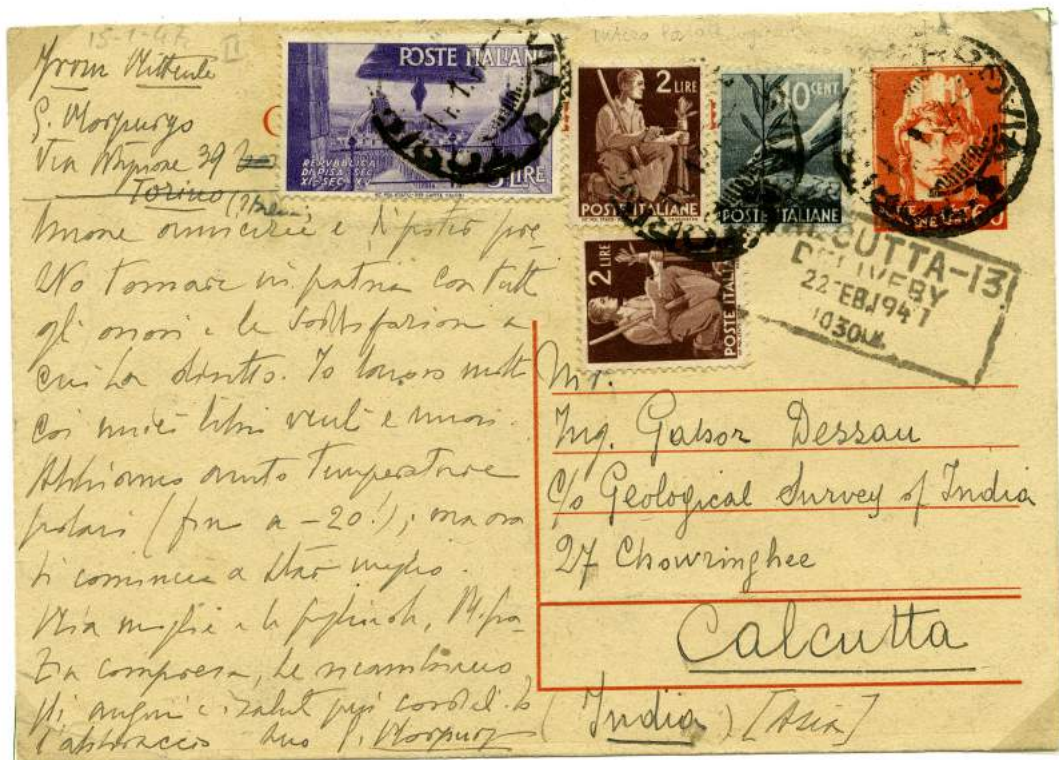 15-1-47
From Mittente
G. Morpurgo
Via Migione 39
Torino
amicizie e
No tornare in patria con tutti
gli onori e le soddisfazioni a
cui ha diritto. Io lavoro molto
coi miei libri
Abbiamo avuto temperature
polari (fino a -20°!); ma ora
si comincia a star meglio.
Mia moglie e le figliuole,
compresa, Le ricambiano
gli auguri e i saluti più cordiali. Io
l'abbraccio suo G. Morpurgo
POSTE ITALIANE
REPVBBLICA
DI PISA SEC
XI-SEC XV
LIRE
2 LIRE
POSTE ITALIANE
10 CENT
POSTE ITALIANE
60
2 LIRE
POSTE ITALIANE
CALCUTTA-13
DELIVERY
22 FEB 1947
1030AM
Mr.
Ing. Gabor Dessau
C/o Geological Survey of India
27 Chowringhee
Calcutta
(India) [Asia]